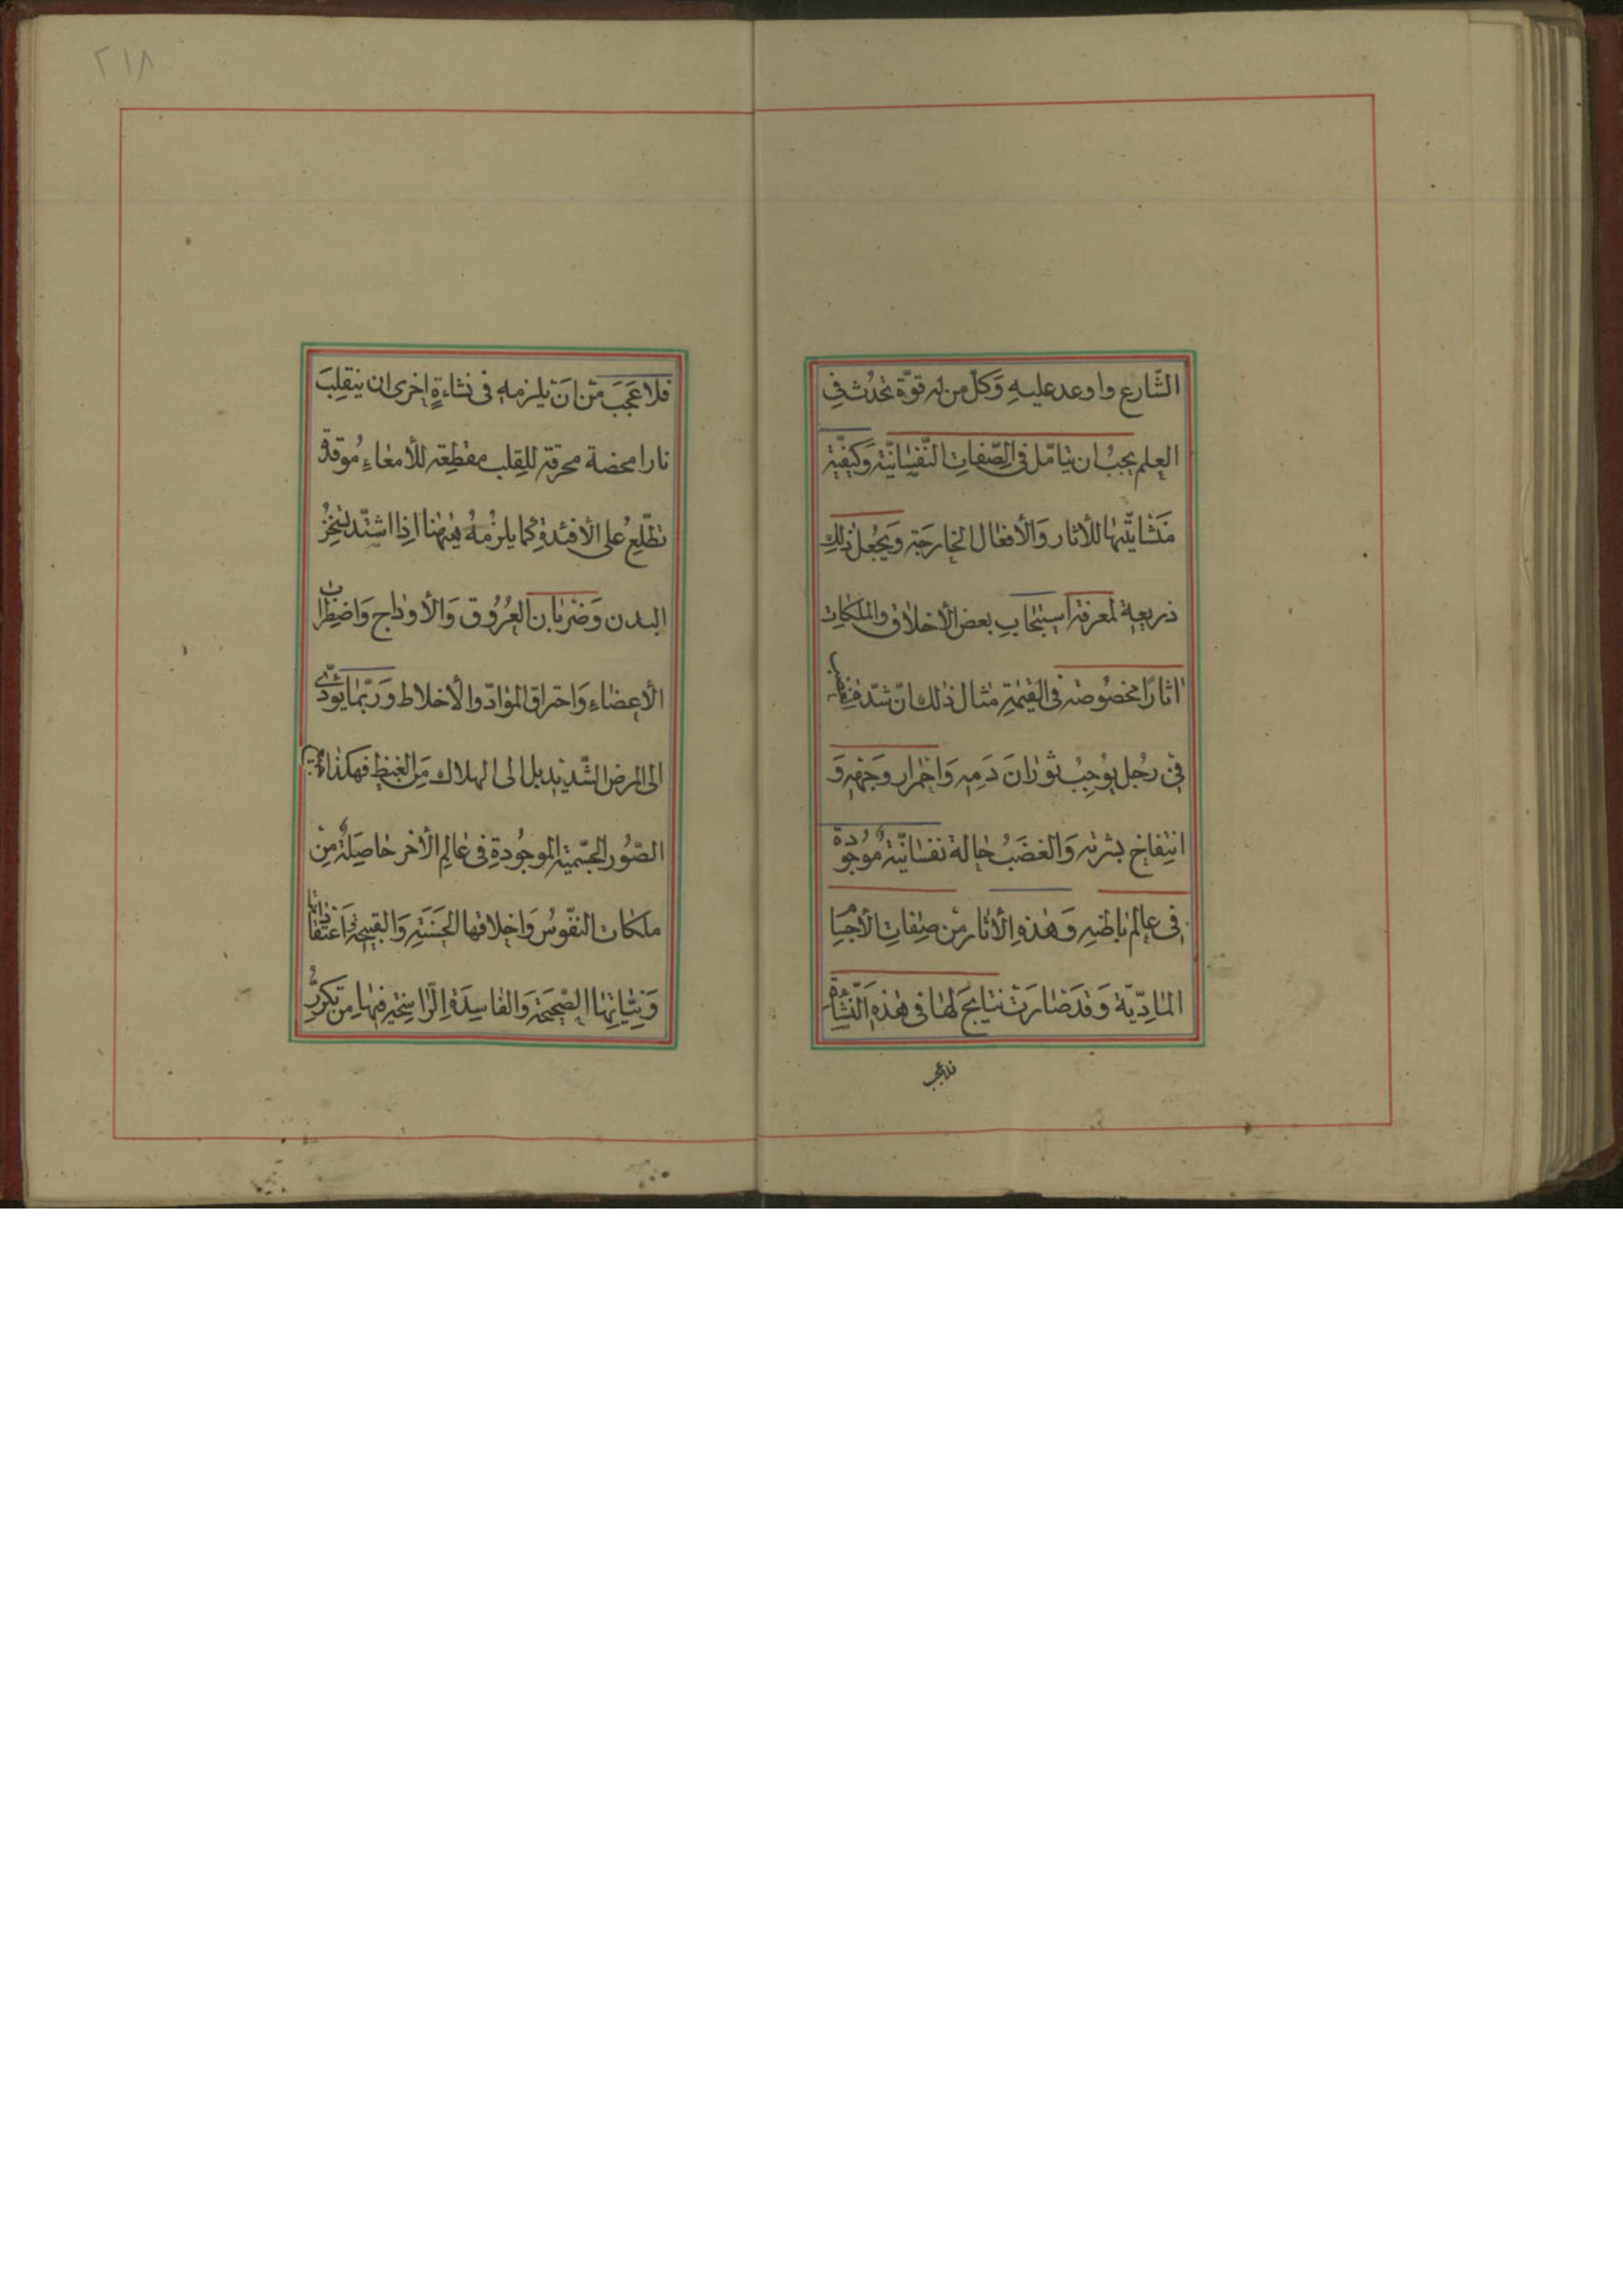 الشّارع واوعد عليهِ وَكلّ من له قوّة تحدُث فِي
العلم يجبُ ان يتامّل فى الصّفاتِ النّفسَانيّة وَكيفيّة
مَنشايّتها للأثار وَالأفعَال الخارجَة وَيجعُل ذلِك
ذريعة لمعرفة استيجابِ بعض الأخلاق والملكاتِ
اثارًا مخصُوصَة فى القيٰمةِ مثال ذلك انّ شدّة الغضب
فى رجُل يوُجِبُ ثورَانَ دَمِه وَاحمرار وَجهِه وَ
انتِفاخ بشرته وَالغضَبُ حَالة نفسَانيّة مَوجُودَة
فى عالم باطنِه وَهٰذهِ الأثار مِن صِفاتِ الأجسَام
المَادِيّة وَقدَ صَارَت نتايجَ لهَا فى هٰذهِ النّشأة
فلاعجب
٢١٨
فلا عَجَبَ مِن اَن يلزمه فى نشاءةٍ اخرى ان ينقلِبَ
نارا محضة محرقة للقلب مقطِعة للأمعَاءِ مُوقدة
تطّلعُ على الأفئدةِ كما يلزمُهُ هيٰهنا اذِا اشتدّ تسَخُّن
البدن وَضرَبَان العُرُوق وَالأودَاج وَاضطِراب
الأعضاءِ وَاحتراق الموَادّ والأخلاط وَربّمَا يؤدّى
الى المرض الشّديد بل الى الهلاك مِنَ الغيظ فهكذا جميع
الصّوُر الجسميّة الموجُودةِ فى عَالِم الأخر حَاصِلةٌ مِن
ملكات النفّوسُ وَاخلاقها الحسَنَةِ وَالقبيحَة وَاعتقادَاتها
وَنيّاتِهَا الصّحيحَة وَالفاسِدَة الرّاسِخة فيهَا مِن تكرّر